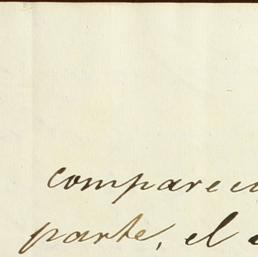 comparec
parte, el